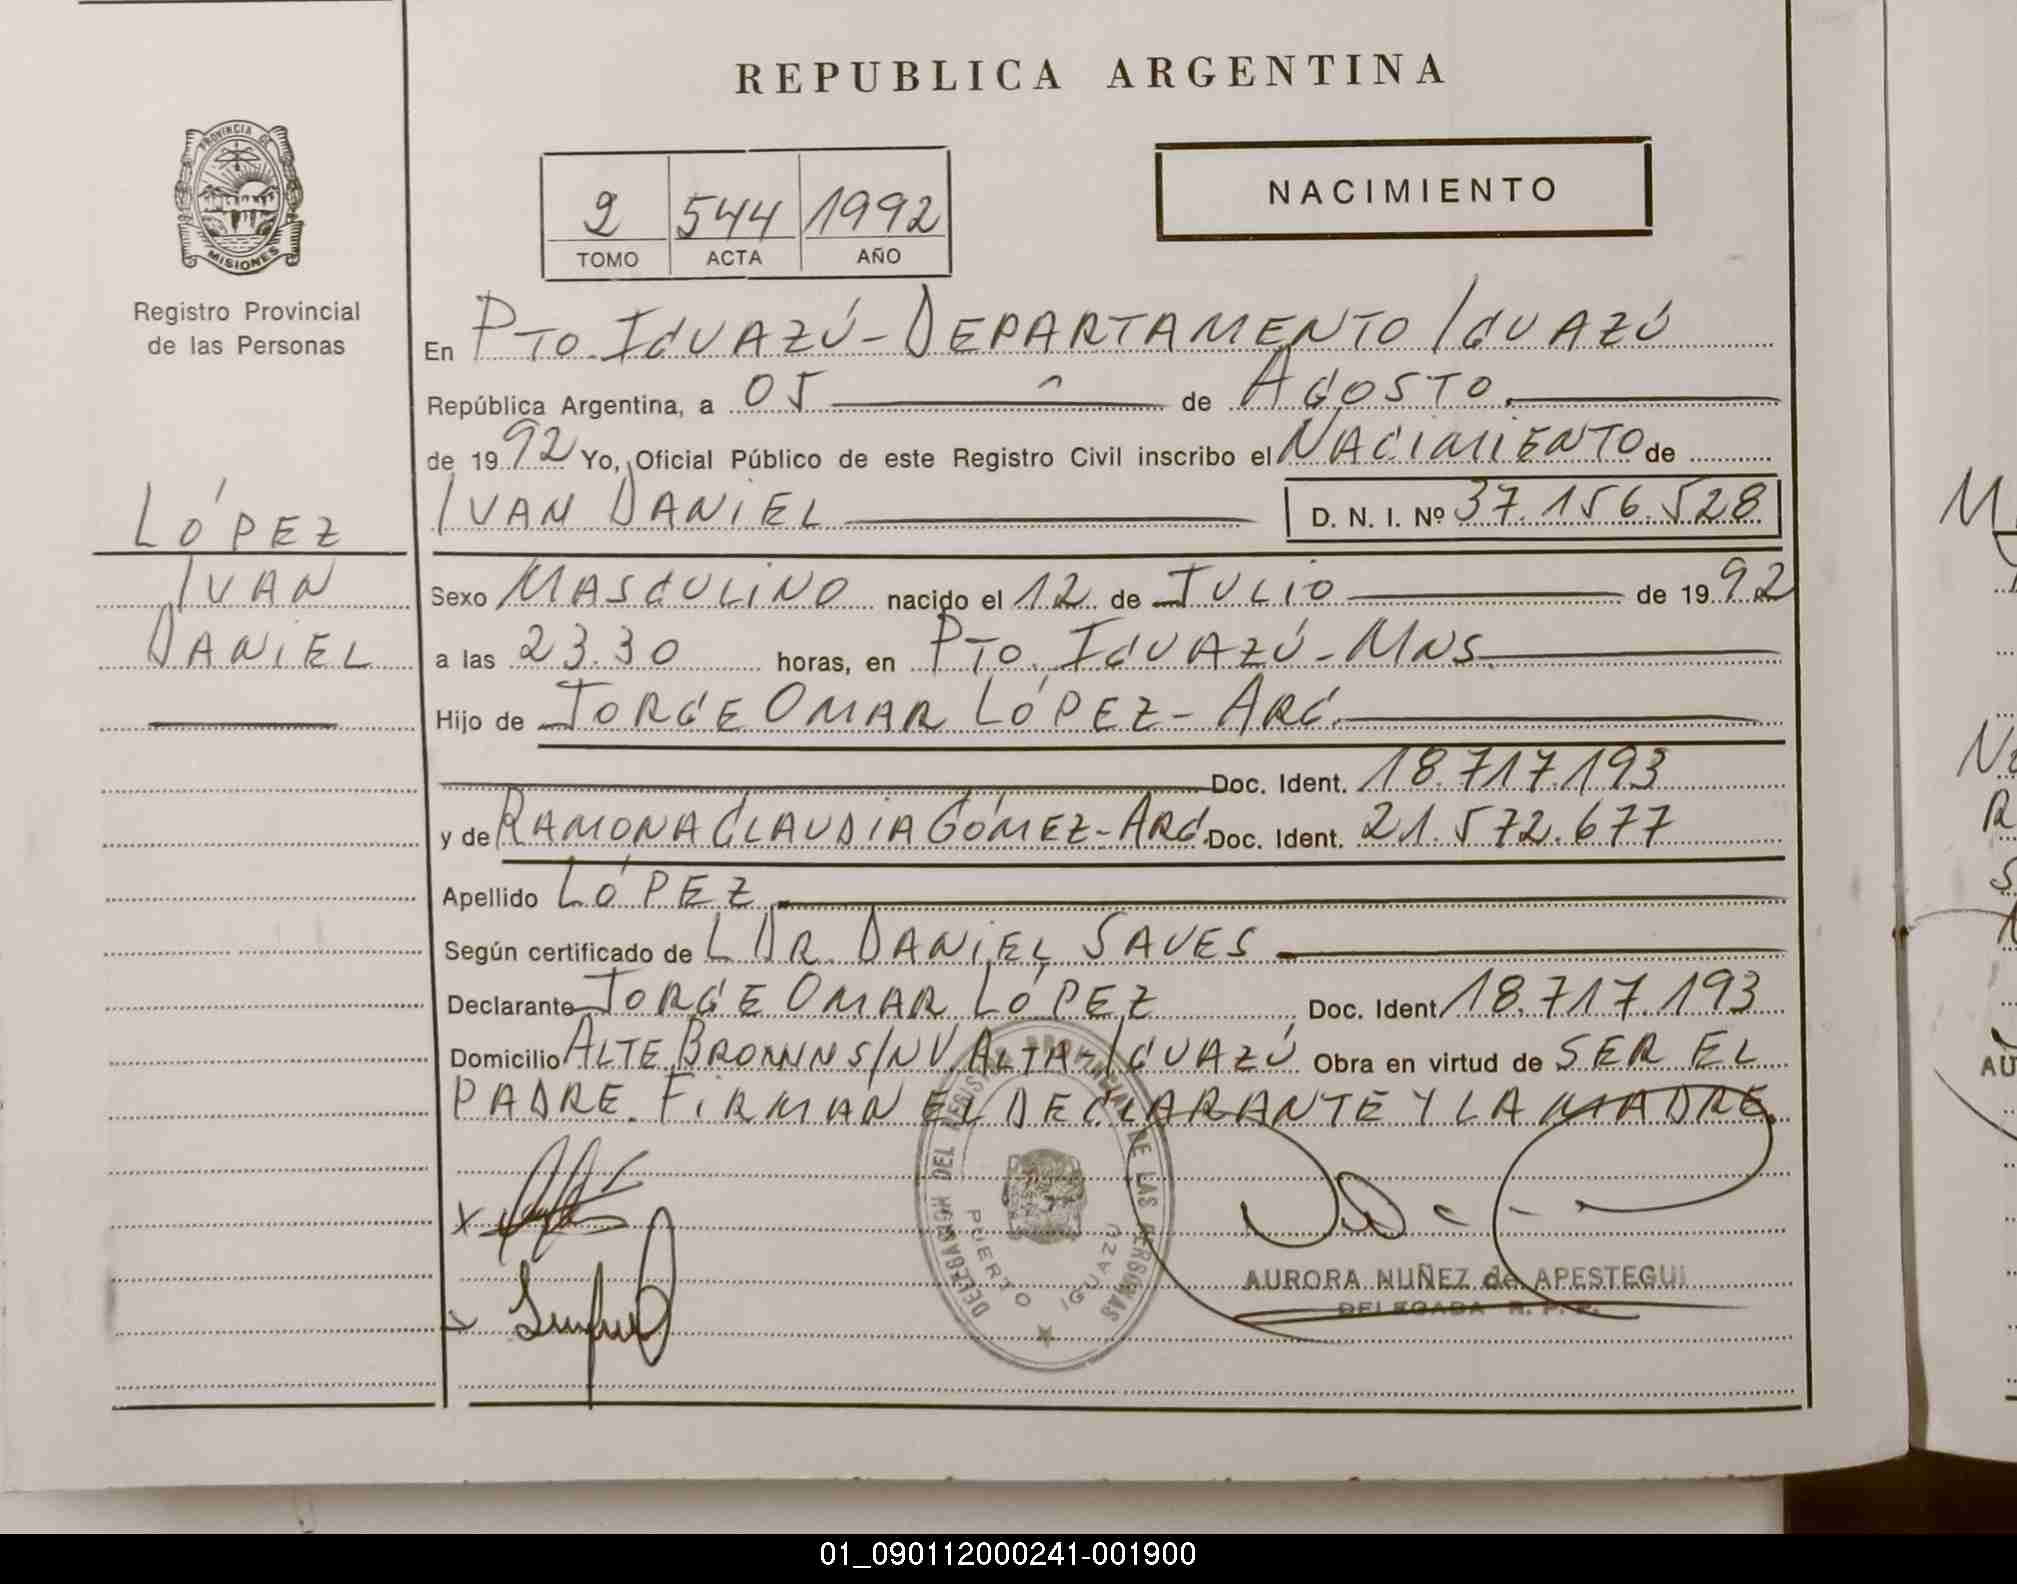 REPUBLICA ARGENTINA
PROVINCIA DE
MISIONES
Registro Provincial
de las Personas
2 544 1992
TOMO ACTA AÑO
NACIMIENTO
En PTO. IGUAZÚ - DEPARTAMENTO IGUAZÚ
República Argentina, a 05 de AGOSTO
de 1992 Yo, Oficial Público de este Registro Civil inscribo el NACIMIENTO de
IVAN DANIEL D. N. I. Nº 37.156.528
LÓPEZ
IVAN
DANIEL
Sexo MASCULINO nacido el 12 de JULIO de 1992
a las 23.30 horas, en PTO. IGUAZÚ - MNS.
Hijo de JORGE OMAR LÓPEZ - ARG.
Doc. Ident. 18.717.193
y de RAMONA CLAUDIA GÓMEZ - ARG. Doc. Ident. 21.572.677
Apellido LÓPEZ
Según certificado de L DR. DANIEL SAVES
Declarante JORGE OMAR LÓPEZ Doc. Ident. 18.717.193
Domicilio ALTE BROWN S/N V. ALTA - IGUAZÚ Obra en virtud de SER EL
PADRE. FIRMAN EL DECLARANTE Y LA MADRE.
DELEGACION DEL REGISTRO PROVINCIAL DE LAS PERSONAS
PUERTO IGUAZU
AURORA NUÑEZ de APESTEGUI
DELEGADA R. P. P.
01_090112000241-001900